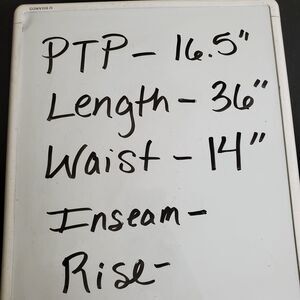 PTP - 16.5"
Length - 36"
Waist - 14"
Inseam -
Rise -